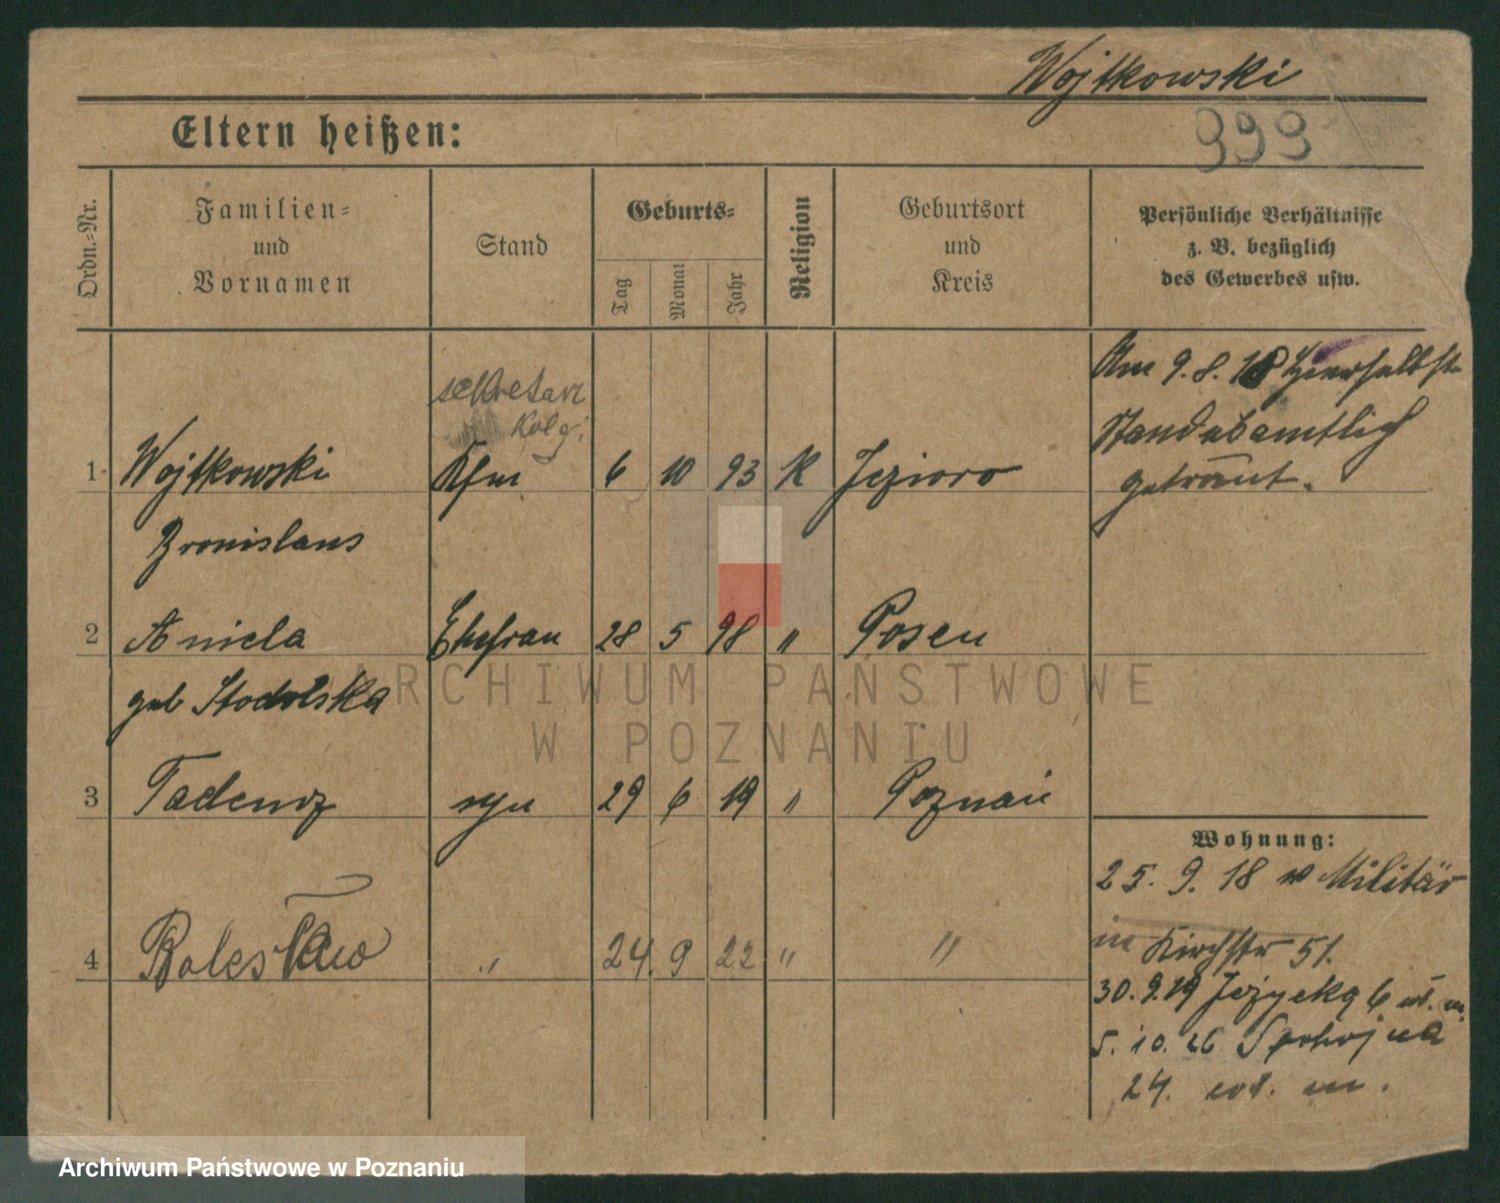 Wojtkowski
Eltern heißen:
999
Ordn.-Nr.
Familien-
und
Vornamen
Stand
Geburts-
Tag
Monat
Jahr
Religion
Geburtsort
und
Kreis
Persönliche Verhältnisse
z. B. bezüglich
des Gewerbes usw.
Am 9.8.18 hierselbst
Standesamtlich
getraut.
sekretarz
Kolej.
1. Wojtkowski Kfm 6 10 93 K Jezioro
Bronislaus
2 Aniela Ehefrau 28 5 98 " Posen
geb Stodolska
3 Tadeusz syn 29 6 19 " Poznań
4 Bolesław " 24. 9 22 " "
Wohnung:
25. 9. 18 v Militär
in Kirchstr 51.
30. 9. 19 Jeżycka 6 wł. m.
5. 10. 26 Spokojna
24. wł. m.
ARCHIWUM PAŃSTWOWE
W POZNANIU
Archiwum Państwowe w Poznaniu